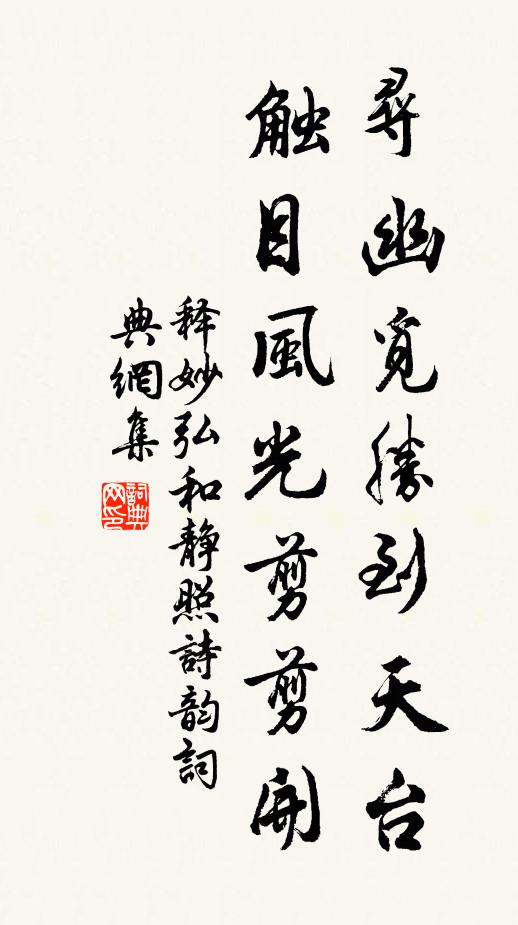 尋幽覓勝到天台
触目風光剪剪開
释妙弘和静照詩韵詞
典網集
詞典网印